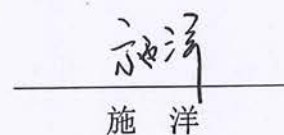 施洋
施 洋